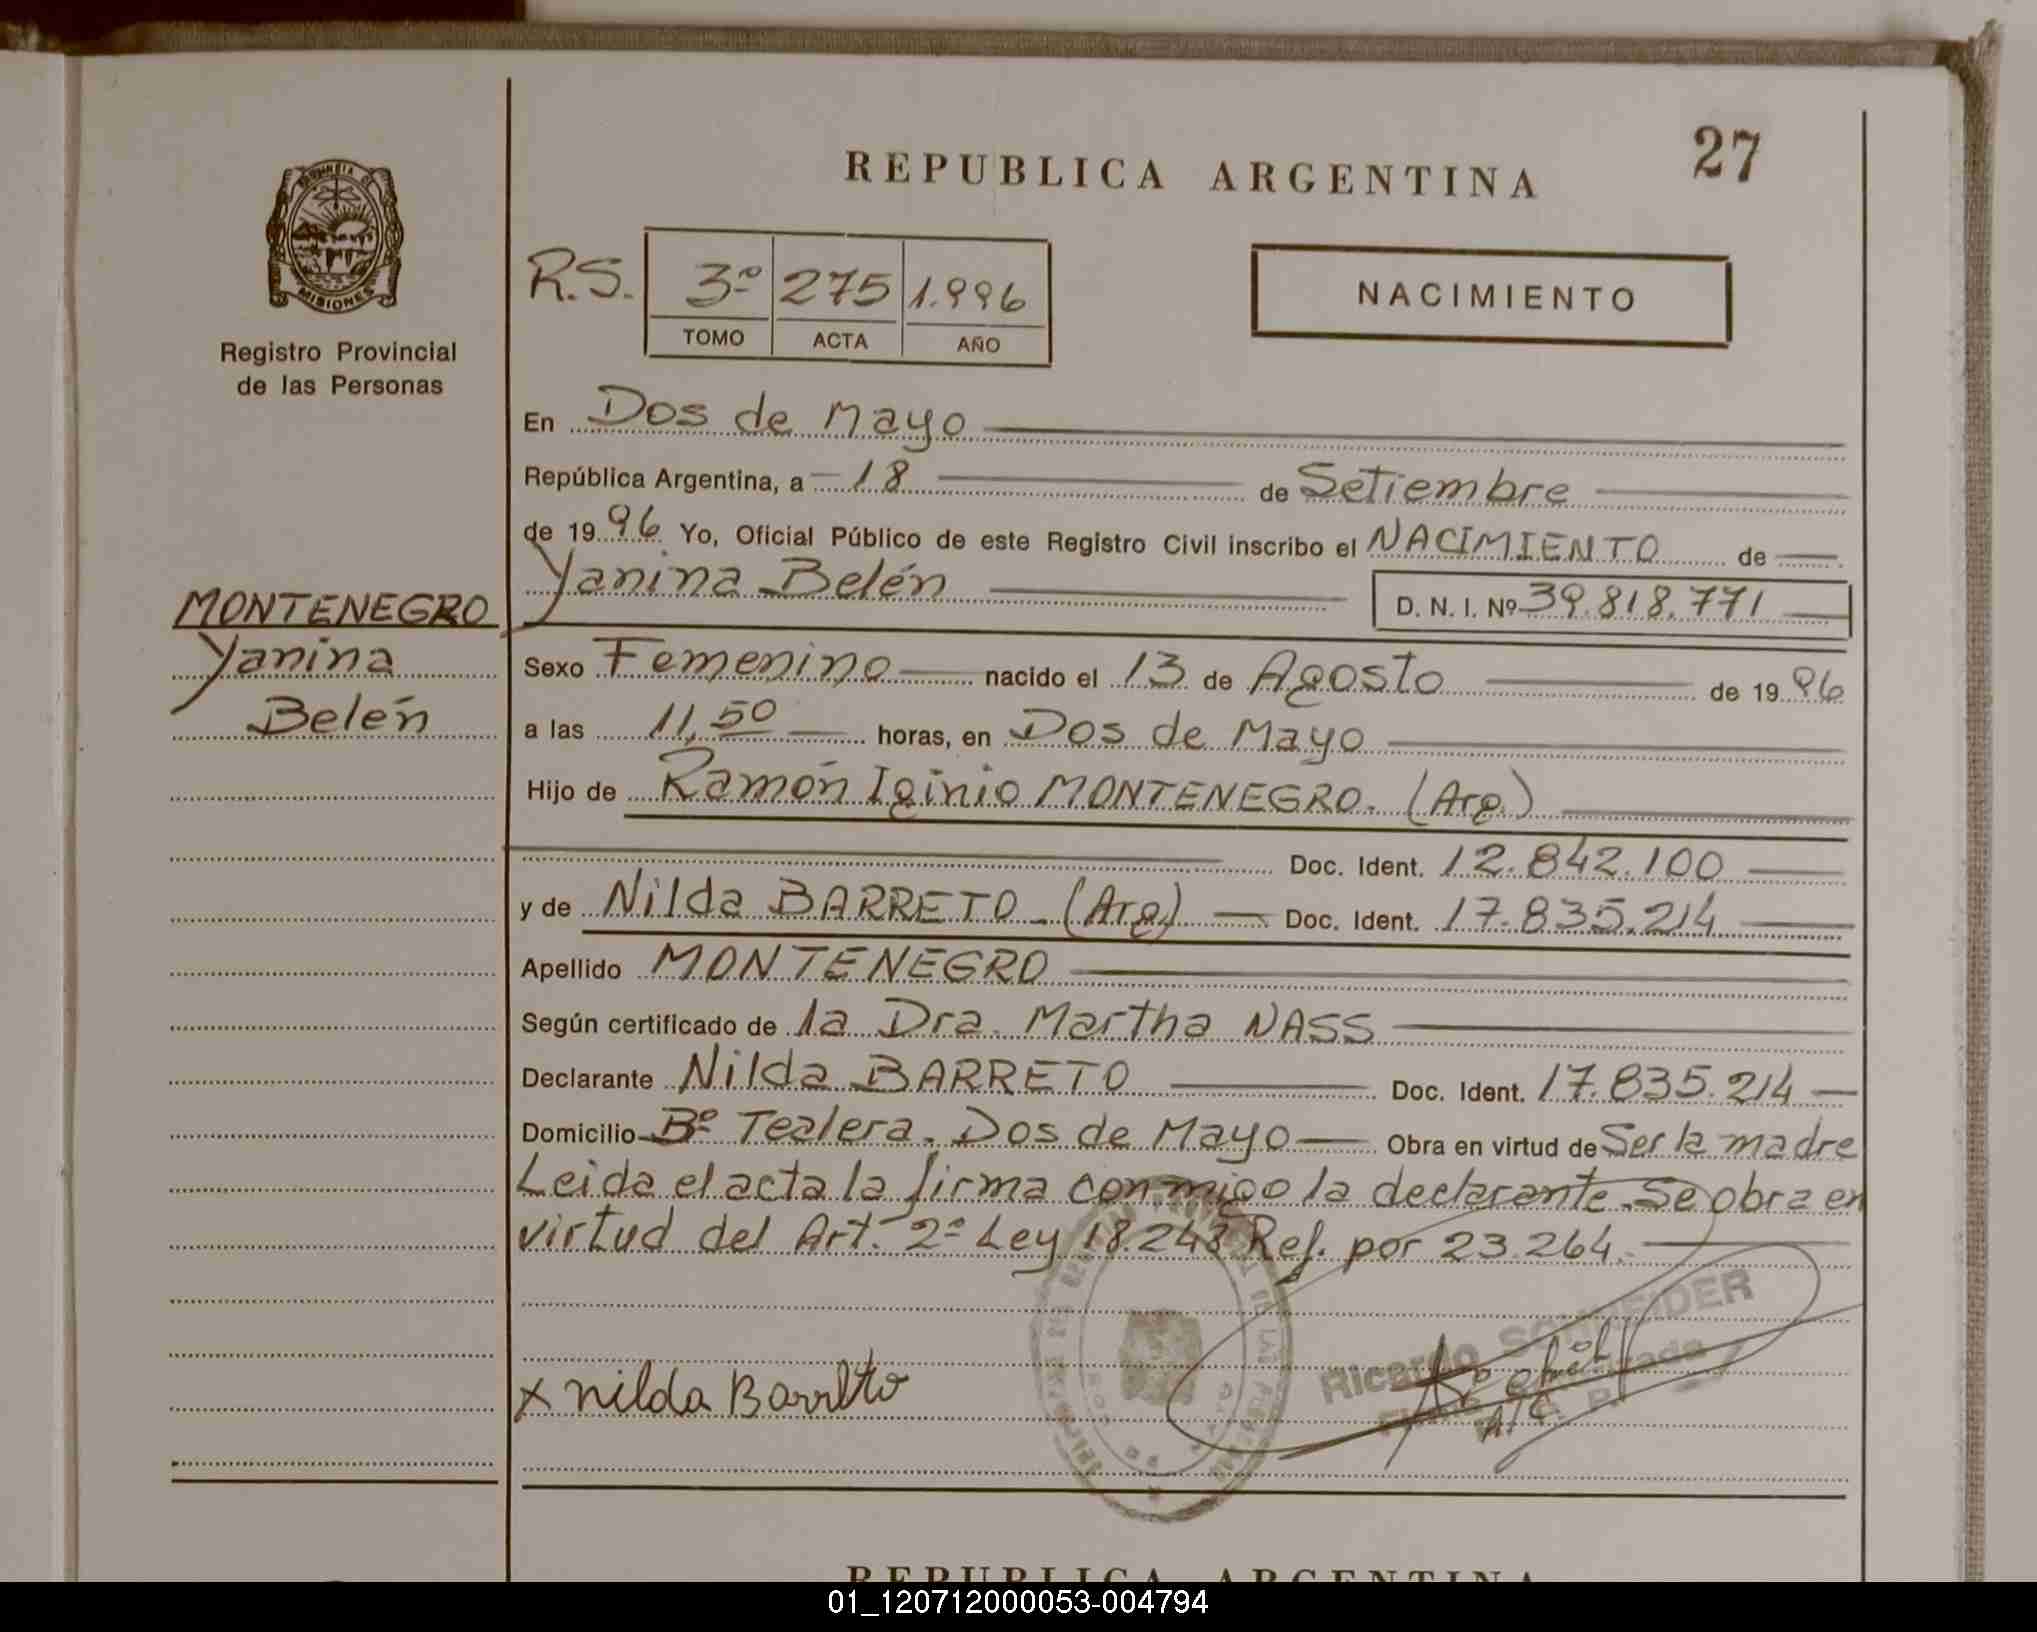 27
REPUBLICA ARGENTINA
R.S. 3º 275 1.996
TOMO ACTA AÑO
NACIMIENTO
MISIONES
Registro Provincial
de las Personas
MONTENEGRO
Yanina
Belén
En Dos de Mayo
República Argentina, a 18 de Setiembre
de 1996 Yo, Oficial Público de este Registro Civil inscribo el NACIMIENTO de
Yanina Belén D. N. I. Nº 39.818.771
Sexo Femenino nacido el 13 de Agosto de 1996
a las 11,50 horas, en Dos de Mayo
Hijo de Ramón Iginio MONTENEGRO. (Arg.)
Doc. Ident. 12.842.100
y de Nilda BARRETO - (Arg.) Doc. Ident. 17.835.214
Apellido MONTENEGRO
Según certificado de la Dra. Martha NASS
Declarante Nilda BARRETO Doc. Ident. 17.835.214
Domicilio Bº Tealera. Dos de Mayo Obra en virtud de Ser la madre
Leida el acta la firma conmigo la declarante. Se obra en
virtud del Art. 2º Ley 18.248 Ref. por 23.264.
x Nilda Barreto
Ricardo SCHNEIDER
REPUBLICA ARGENTINA
01_120712000053-004794